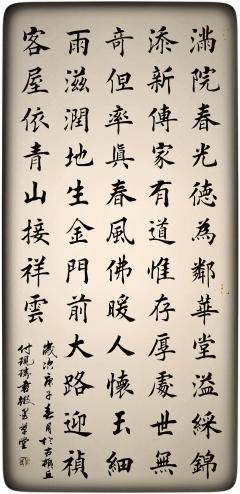 滿院春光德為鄰華堂溢綵錦
添新傳家有道惟存厚處世無
奇但率真春風佛暖人懷玉細
雨滋潤地生金門前大路迎禎
客屋依青山接祥雲
歲次庚子春月於古頓丘
付現